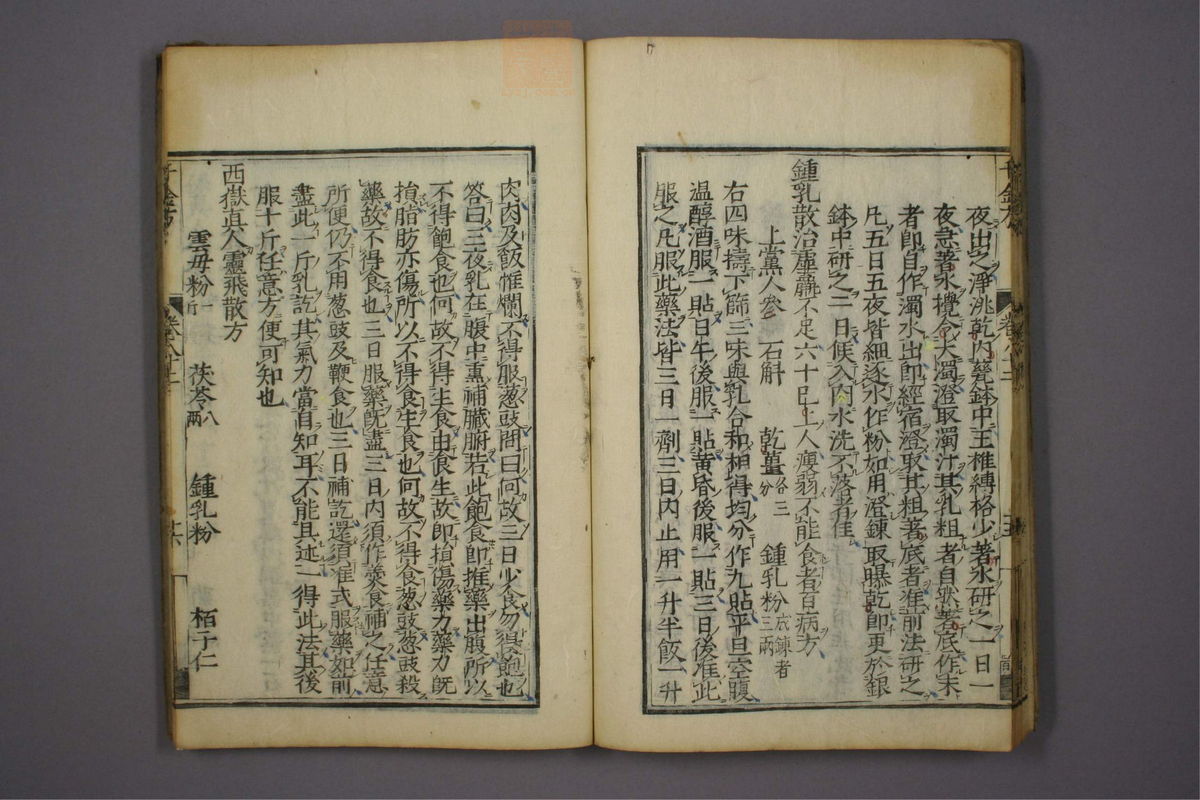 夜出之淨洮乾內甆鉢中王椎縛格少著水研之一日一
夜急著水攪令大濁澄取濁汁其乳粗者自然著底作末
者即自作濁水出即經宿澄取其粗著底者准前法研之
凡五日五夜皆細逐水作粉如用澄鍊取曝乾即更於銀
鉢中研之一日候入肉水洗不落者佳
鍾乳散治虛羸不足六十已上人瘦弱不能食者百病方
上黨人參 石斛 乾薑各三分 鍾乳粉成鍊者三兩
右四味擣下篩三味與乳合和相得均分作九貼平旦空腹
溫醇酒服一貼日午後服一貼黃昏後服一貼三日後准此
服之凡服此藥法皆三日一劑三日內止用一升半飯一升
肉肉及飯惟爛不得服葱豉問曰何故三日少食勿得飽也
答曰三夜乳在腹中熏補臟腑若此飽食即推藥出腹所以
不得飽食也何故不得生食由食生故即損傷藥力藥力旣
損脂肪亦傷所以不得食生食也何故不得食葱豉葱豉殺
藥故不得食也三日服藥旣盡三日內須作羹食補之任意
所便仍不用葱豉及鞕食也三日補訖還須准式服藥如前
盡此一斤乳訖其氣力當自知耳不能具述一得此法其後
服十斤任意方便可知也
西嶽真人靈飛散方
雲母粉一斤 茯苓八兩 鍾乳粉 栢子仁
千金方 卷八十二 十六